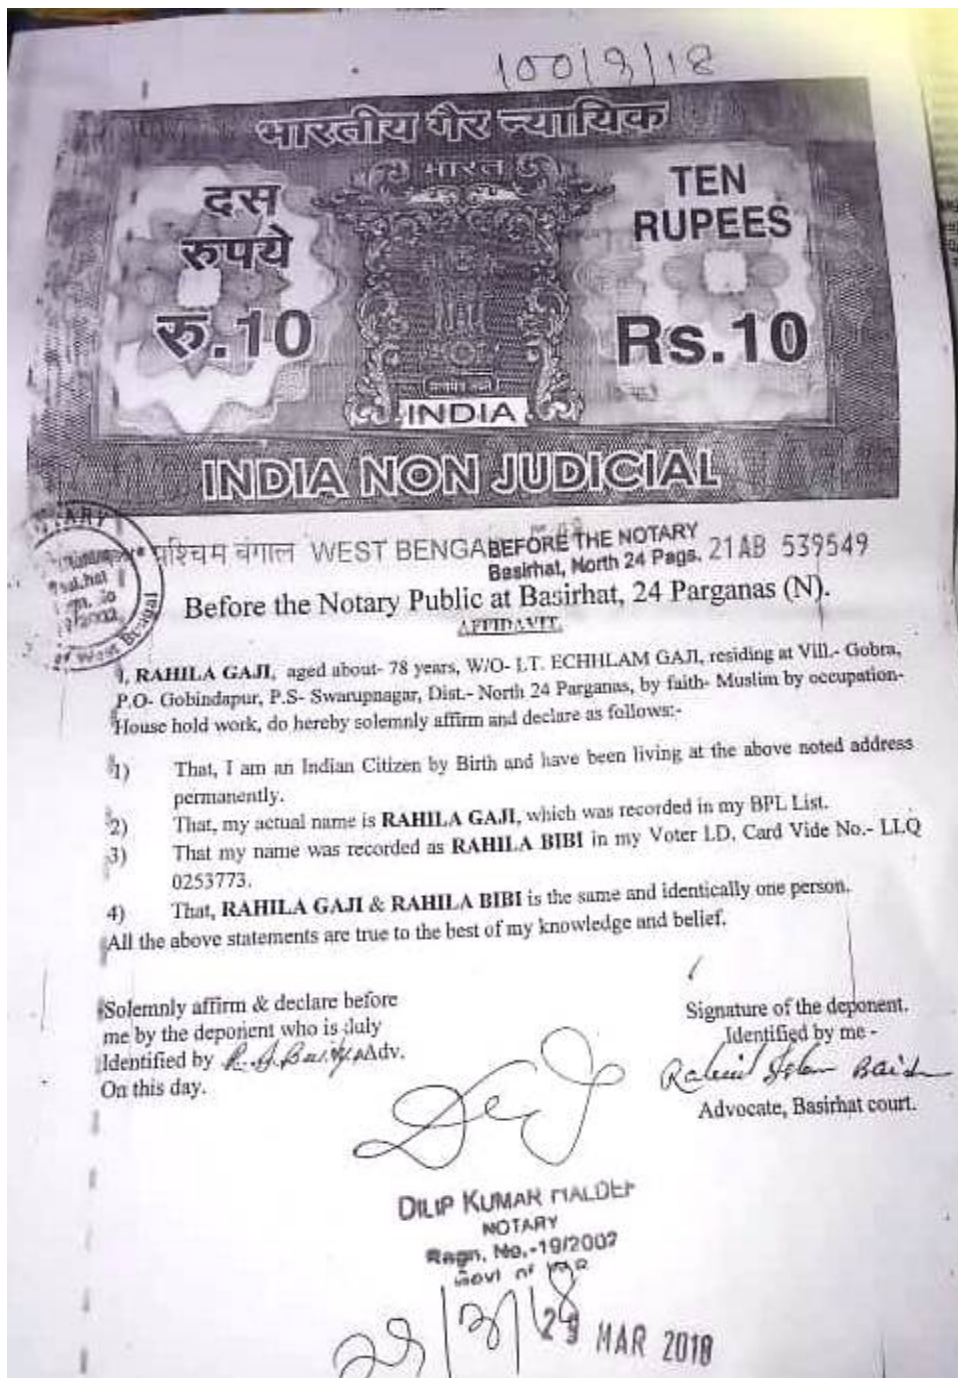 100/3/18
भारतीय गैर न्यायिक
भारत
दस
रुपये
रु.10
TEN
RUPEES
Rs.10
सत्यमेव जयते
INDIA
INDIA NON JUDICIAL
पश्चिम बंगाल WEST BENGAL
21AB 539549
BEFORE THE NOTARY
Basirhat, North 24 Pags.
Before the Notary Public at Basirhat, 24 Parganas (N).
AFFIDAVIT.
I, RAHILA GAJI, aged about- 78 years, W/O- LT. ECHHLAM GAJI, residing at Vill.- Gobra,
P.O- Gobindapur, P.S- Swarupnagar, Dist.- North 24 Parganas, by faith- Muslim by occupation-
House hold work, do hereby solemnly affirm and declare as follows:-
1) That, I am an Indian Citizen by Birth and have been living at the above noted address
permanently.
2) That, my actual name is RAHILA GAJI, which was recorded in my BPL List.
3) That my name was recorded as RAHILA BIBI in my Voter I.D. Card Vide No.- LLQ
0253773.
4) That, RAHILA GAJI & RAHILA BIBI is the same and identically one person.
All the above statements are true to the best of my knowledge and belief.
Solemnly affirm & declare before
me by the deponent who is duly
Identified by Adv.
On this day.
Signature of the deponent.
Identified by me -
Advocate, Basirhat court.
DILIP KUMAR HALDER
NOTARY
Regn. No.-19/2002
Govt of
29 MAR 2018